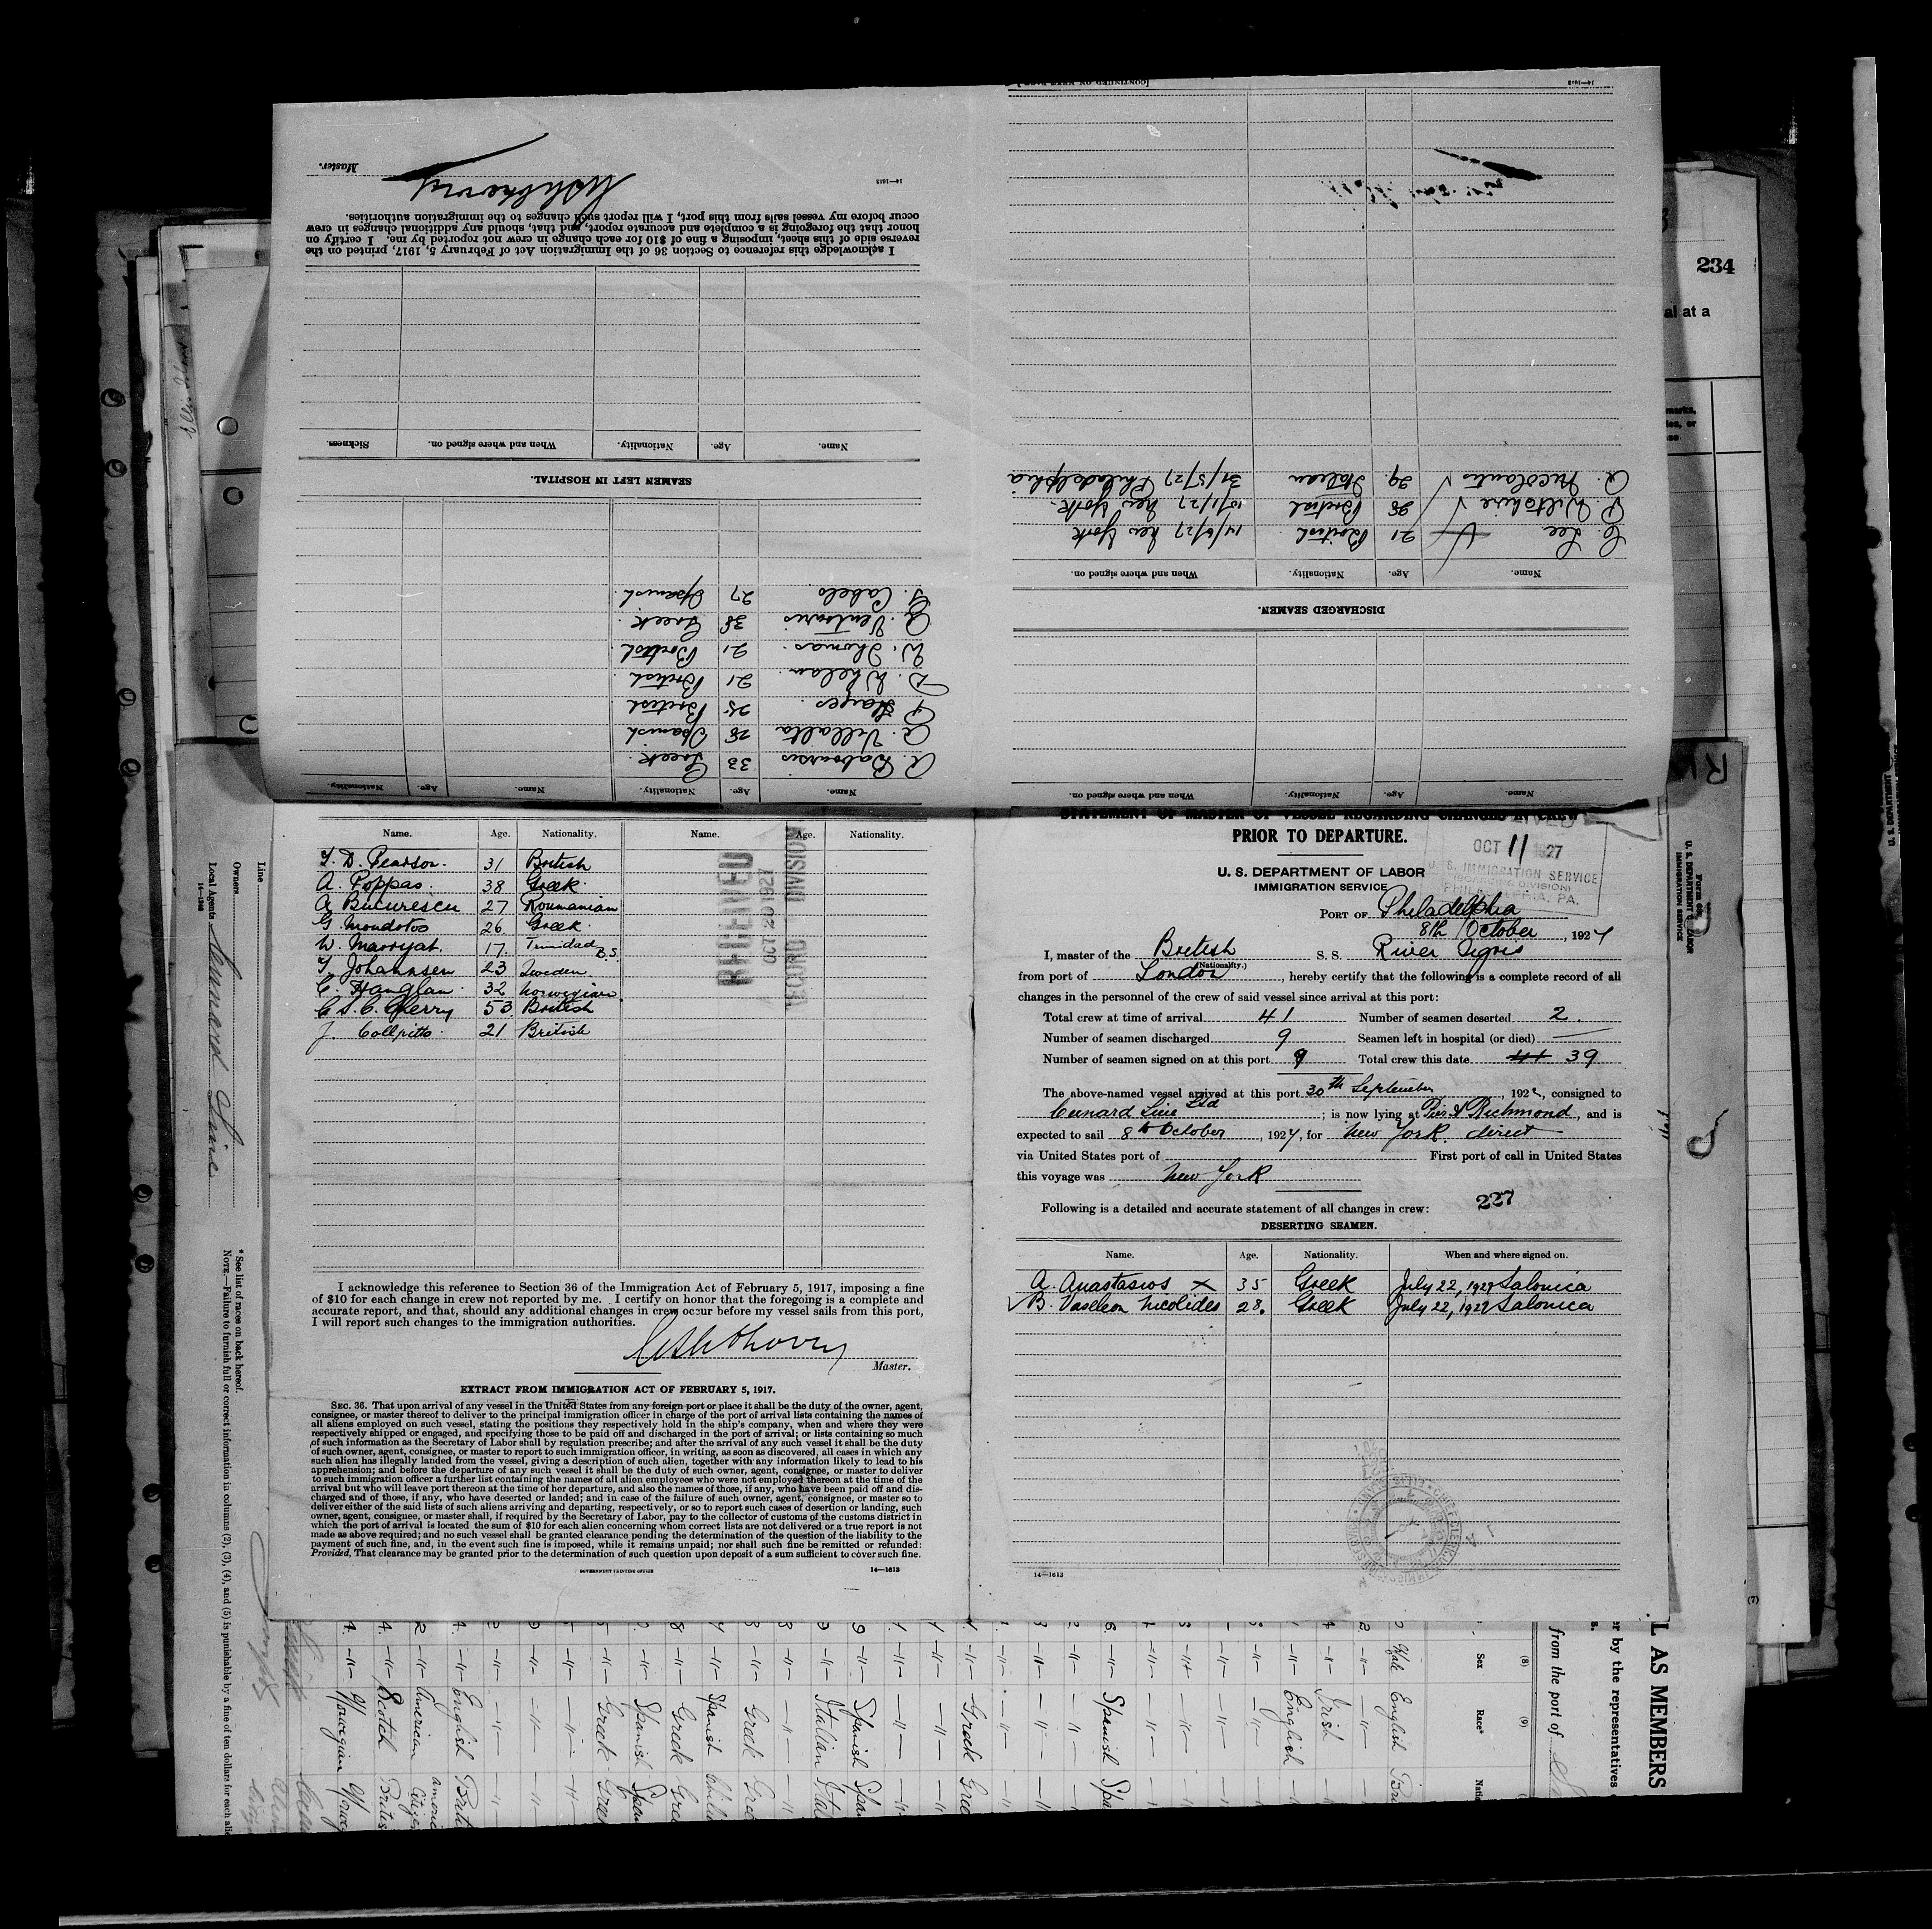 Master.
14—1613
I acknowledge this reference to Section 36 of the Immigration Act of February 5, 1917, printed on the
reverse side of this sheet, imposing a fine of $10 for each change in crew not reported by me. I certify on
honor that the foregoing is a complete and accurate report, and that, should any additional changes in crew
occur before my vessel sails from this port, I will report such changes to the immigration authorities.
Name. Age. Nationality. When and where signed on. Sickness.
SEAMEN LEFT IN HOSPITAL.
G. Cabelo 27 Spanish.
A. Ventouris 38 Greek.
W. Thomas. 21 British.
D. Whelan. 21 British.
P. Hayes. 25 British
A. Villalta 28 Spanish
A. Baboursis 33 Greek.
Name. Age. Nationality. Name. Age. Nationality.
14—1613
A. Nicolauto 29. Italian 31/5/27 Philadelphia
P. Wiltshire 28 British 10/1/27 New York.
C. Lee 21 British 14/6/27 New York
Name. Age. Nationality. When and where signed on.
DISCHARGED SEAMEN.
Name. Age. Nationality. When and where signed on.
Name. Age. Nationality. Name. Age. Nationality.
T. D. Pearson. 31 British
A. Poppas. 38 Greek.
A Bucurescu 27 Roumanian
G. Mondotos 26. Greek.
W. Marryat. 17. Trinidad B.S.
T. Johannsen 23 Sweden.
C. Hanglan. 32 Norwegian.
C S. C. Cherry 53. British
J. Collpitts. 21 British
RECEIVED
OCT 20 1927
RECORD DIVISION
I acknowledge this reference to Section 36 of the Immigration Act of February 5, 1917, imposing a fine
of $10 for each change in crew not reported by me. I certify on honor that the foregoing is a complete and
accurate report, and that, should any additional changes in crew occur before my vessel sails from this port,
I will report such changes to the immigration authorities.
Master.
EXTRACT FROM IMMIGRATION ACT OF FEBRUARY 5, 1917.
SEC. 36. That upon arrival of any vessel in the United States from any foreign port or place it shall be the duty of the owner, agent,
consignee, or master thereof to deliver to the principal immigration officer in charge of the port of arrival lists containing the names of
all aliens employed on such vessel, stating the positions they respectively hold in the ship's company, when and where they were
respectively shipped or engaged, and specifying those to be paid off and discharged in the port of arrival; or lists containing so much
of such information as the Secretary of Labor shall by regulation prescribe; and after the arrival of any such vessel it shall be the duty
of such owner, agent, consignee, or master to report to such immigration officer, in writing, as soon as discovered, all cases in which any
such alien has illegally landed from the vessel, giving a description of such alien, together with any information likely to lead to his
apprehension; and before the departure of any such vessel it shall be the duty of such owner, agent, consignee, or master to deliver
to such immigration officer a further list containing the names of all alien employees who were not employed thereon at the time of the
arrival but who will leave port thereon at the time of her departure, and also the names of those, if any, who have been paid off and dis-
charged and of those, if any, who have deserted or landed; and in case of the failure of such owner, agent, consignee, or master so to
deliver either of the said lists of such aliens arriving and departing, respectively, or so to report such cases of desertion or landing, such
owner, agent, consignee, or master shall, if required by the Secretary of Labor, pay to the collector of customs of the customs district in
which the port of arrival is located the sum of $10 for each alien concerning whom correct lists are not delivered or a true report is not
made as above required; and no such vessel shall be granted clearance pending the determination of the question of the liability to the
payment of such fine, and, in the event such fine is imposed, while it remains unpaid; nor shall such fine be remitted or refunded:
Provided, That clearance may be granted prior to the determination of such question upon deposit of a sum sufficient to cover such fine.
GOVERNMENT PRINTING OFFICE 14—1613
STATEMENT OF MASTER OF VESSEL REGARDING CHANGES IN CREW
PRIOR TO DEPARTURE.
OCT 11 1927
U. S. IMMIGRATION SERVICE
PHILADELPHIA, PA.
U. S. DEPARTMENT OF LABOR
IMMIGRATION SERVICE
PORT OF Philadelphia
8th October, 1927
I, master of the British S. S. River Tigris
(Nationality.)
from port of London, hereby certify that the following is a complete record of all
changes in the personnel of the crew of said vessel since arrival at this port:
Total crew at time of arrival 41 Number of seamen deserted 2.
Number of seamen discharged 9 Seamen left in hospital (or died) —
Number of seamen signed on at this port 9 Total crew this date 41 39
The above-named vessel arrived at this port 30th September, 1927, consigned to
Cunard Line Ltd; is now lying at Pier A Richmond, and is
expected to sail 8th October, 1927, for New York. direct
via United States port of First port of call in United States
this voyage was New York
Following is a detailed and accurate statement of all changes in crew: 227
DESERTING SEAMEN.
Name. Age. Nationality. When and where signed on.
A. Anastasios x 35 Greek July 22, 1927 Salonica
B. Vasileon Nicolides 28. Greek July 22, 1927 Salonica
14—1613
234
al at a
marks,
Line
Owners
Local Agents Cunard Line
14—1240
* See list of races on back hereof.
NOTE.—Failure to furnish full or correct information in columns (2), (3), (4), and (5) is punishable by a fine of ten dollars for each alie
Form 689
U. S. DEPARTMENT OF LABOR
IMMIGRATION SERVICE
L AS MEMBERS
er by the representatives
from the port of
(8) (9)
Sex Race*
Male English
Irish
English
Spanish
Greek
Spanish
Italian
Greek
Spanish
Greek
Spanish
Greek
English
American
Scotch
Norwegian